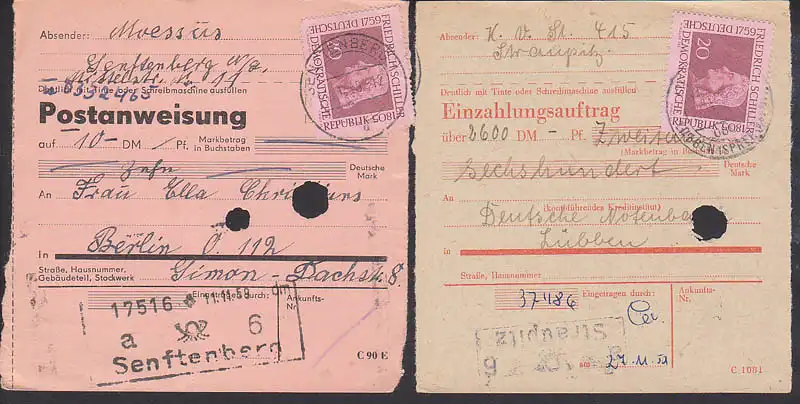 Absender: Moessus
Senftenberg N/L.
Deutlich mit Tinte oder Schreibmaschine ausfüllen
Postanweisung
auf -10- DM / Pf. Markbetrag in Buchstaben
Zehn Deutsche Mark
An Frau Ella
In Berlin O. 112
Straße, Hausnummer, Gebäudeteil, Stockwerk Simon-Dachstr. 8
Eingetragen durch: Ankunfts-Nr.
17516 11.11.59
a 6
Senftenberg
C 90 E
FRIEDRICH SCHILLER 1759
DEUTSCHE DEMOKRATISCHE REPUBLIK
Absender: K. V. St. 415
Straupitz
Deutlich mit Tinte oder Schreibmaschine ausfüllen
Einzahlungsauftrag
über 2600 DM - Pf.
(Markbetrag in
sechshundert Deutsche Mark
An (kontoführendes Kreditinstitut)
Deutsche Notenbank
in Lübben
Straße, Hausnummer
37486 Eingetragen durch: Ankunfts-Nr.
Straupitz
am: 27. 11. 59
C 1081
FRIEDRICH SCHILLER 1759
DEUTSCHE DEMOKRATISCHE REPUBLIK
20